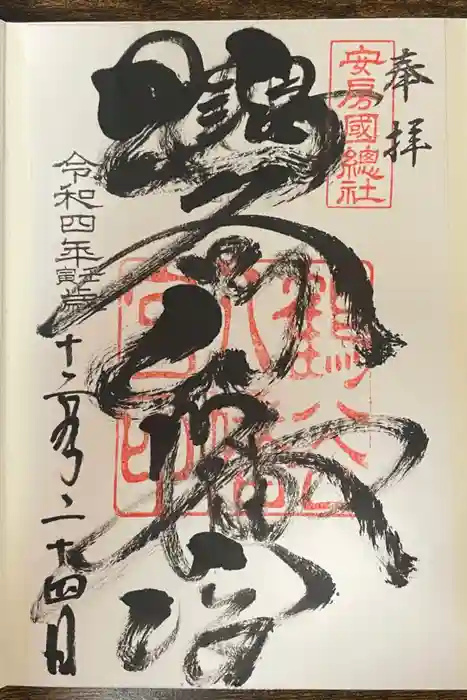 奉拝
安房國總社
鶴谷八幡宮
鶴谷
八幡
宮印
令和四年壬寅歳
十二月二十四日